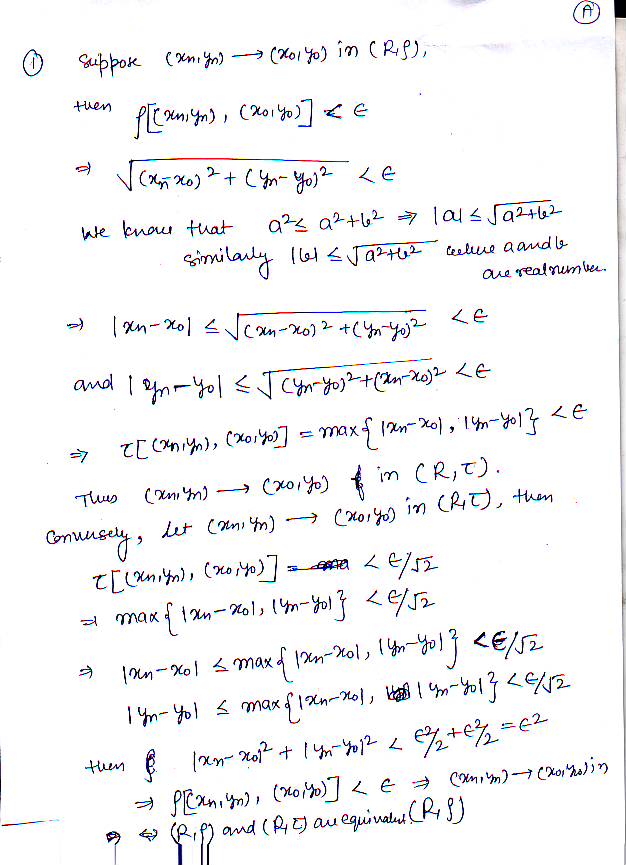 Ⓐ
① Suppose (xn,yn) → (x0,y0) in (R,ρ),
then ρ[(xn,yn), (x0,y0)] < ε
⇒ √(xn-x0)² + (yn-y0)² < ε
We know that a² ≤ a²+b² ⇒ |a| ≤ √a²+b²
similarly |b| ≤ √a²+b² where a and b
are real number.
⇒ |xn-x0| ≤ √(xn-x0)² + (yn-y0)² < ε
and |yn-y0| ≤ √(yn-y0)² + (xn-x0)² < ε
⇒ τ[(xn,yn), (x0,y0)] = max{|xn-x0|, |yn-y0|} < ε
Thus (xn,yn) → (x0,y0) in (R,τ).
Conversely, let (xn,yn) → (x0,y0) in (R,τ), then
τ[(xn,yn), (x0,y0)] < ε/√2
⇒ max{|xn-x0|, |yn-y0|} < ε/√2
⇒ |xn-x0| ≤ max{|xn-x0|, |yn-y0|} < ε/√2
|yn-y0| ≤ max{|xn-x0|, |yn-y0|} < ε/√2
then |xn-x0|² + |yn-y0|² < ε²/2 + ε²/2 = ε²
⇒ ρ[(xn,yn), (x0,y0)] < ε ⇒ (xn,yn) → (x0,y0) in
⇔ (R,ρ) and (R,τ) are equivalent (R,ρ)